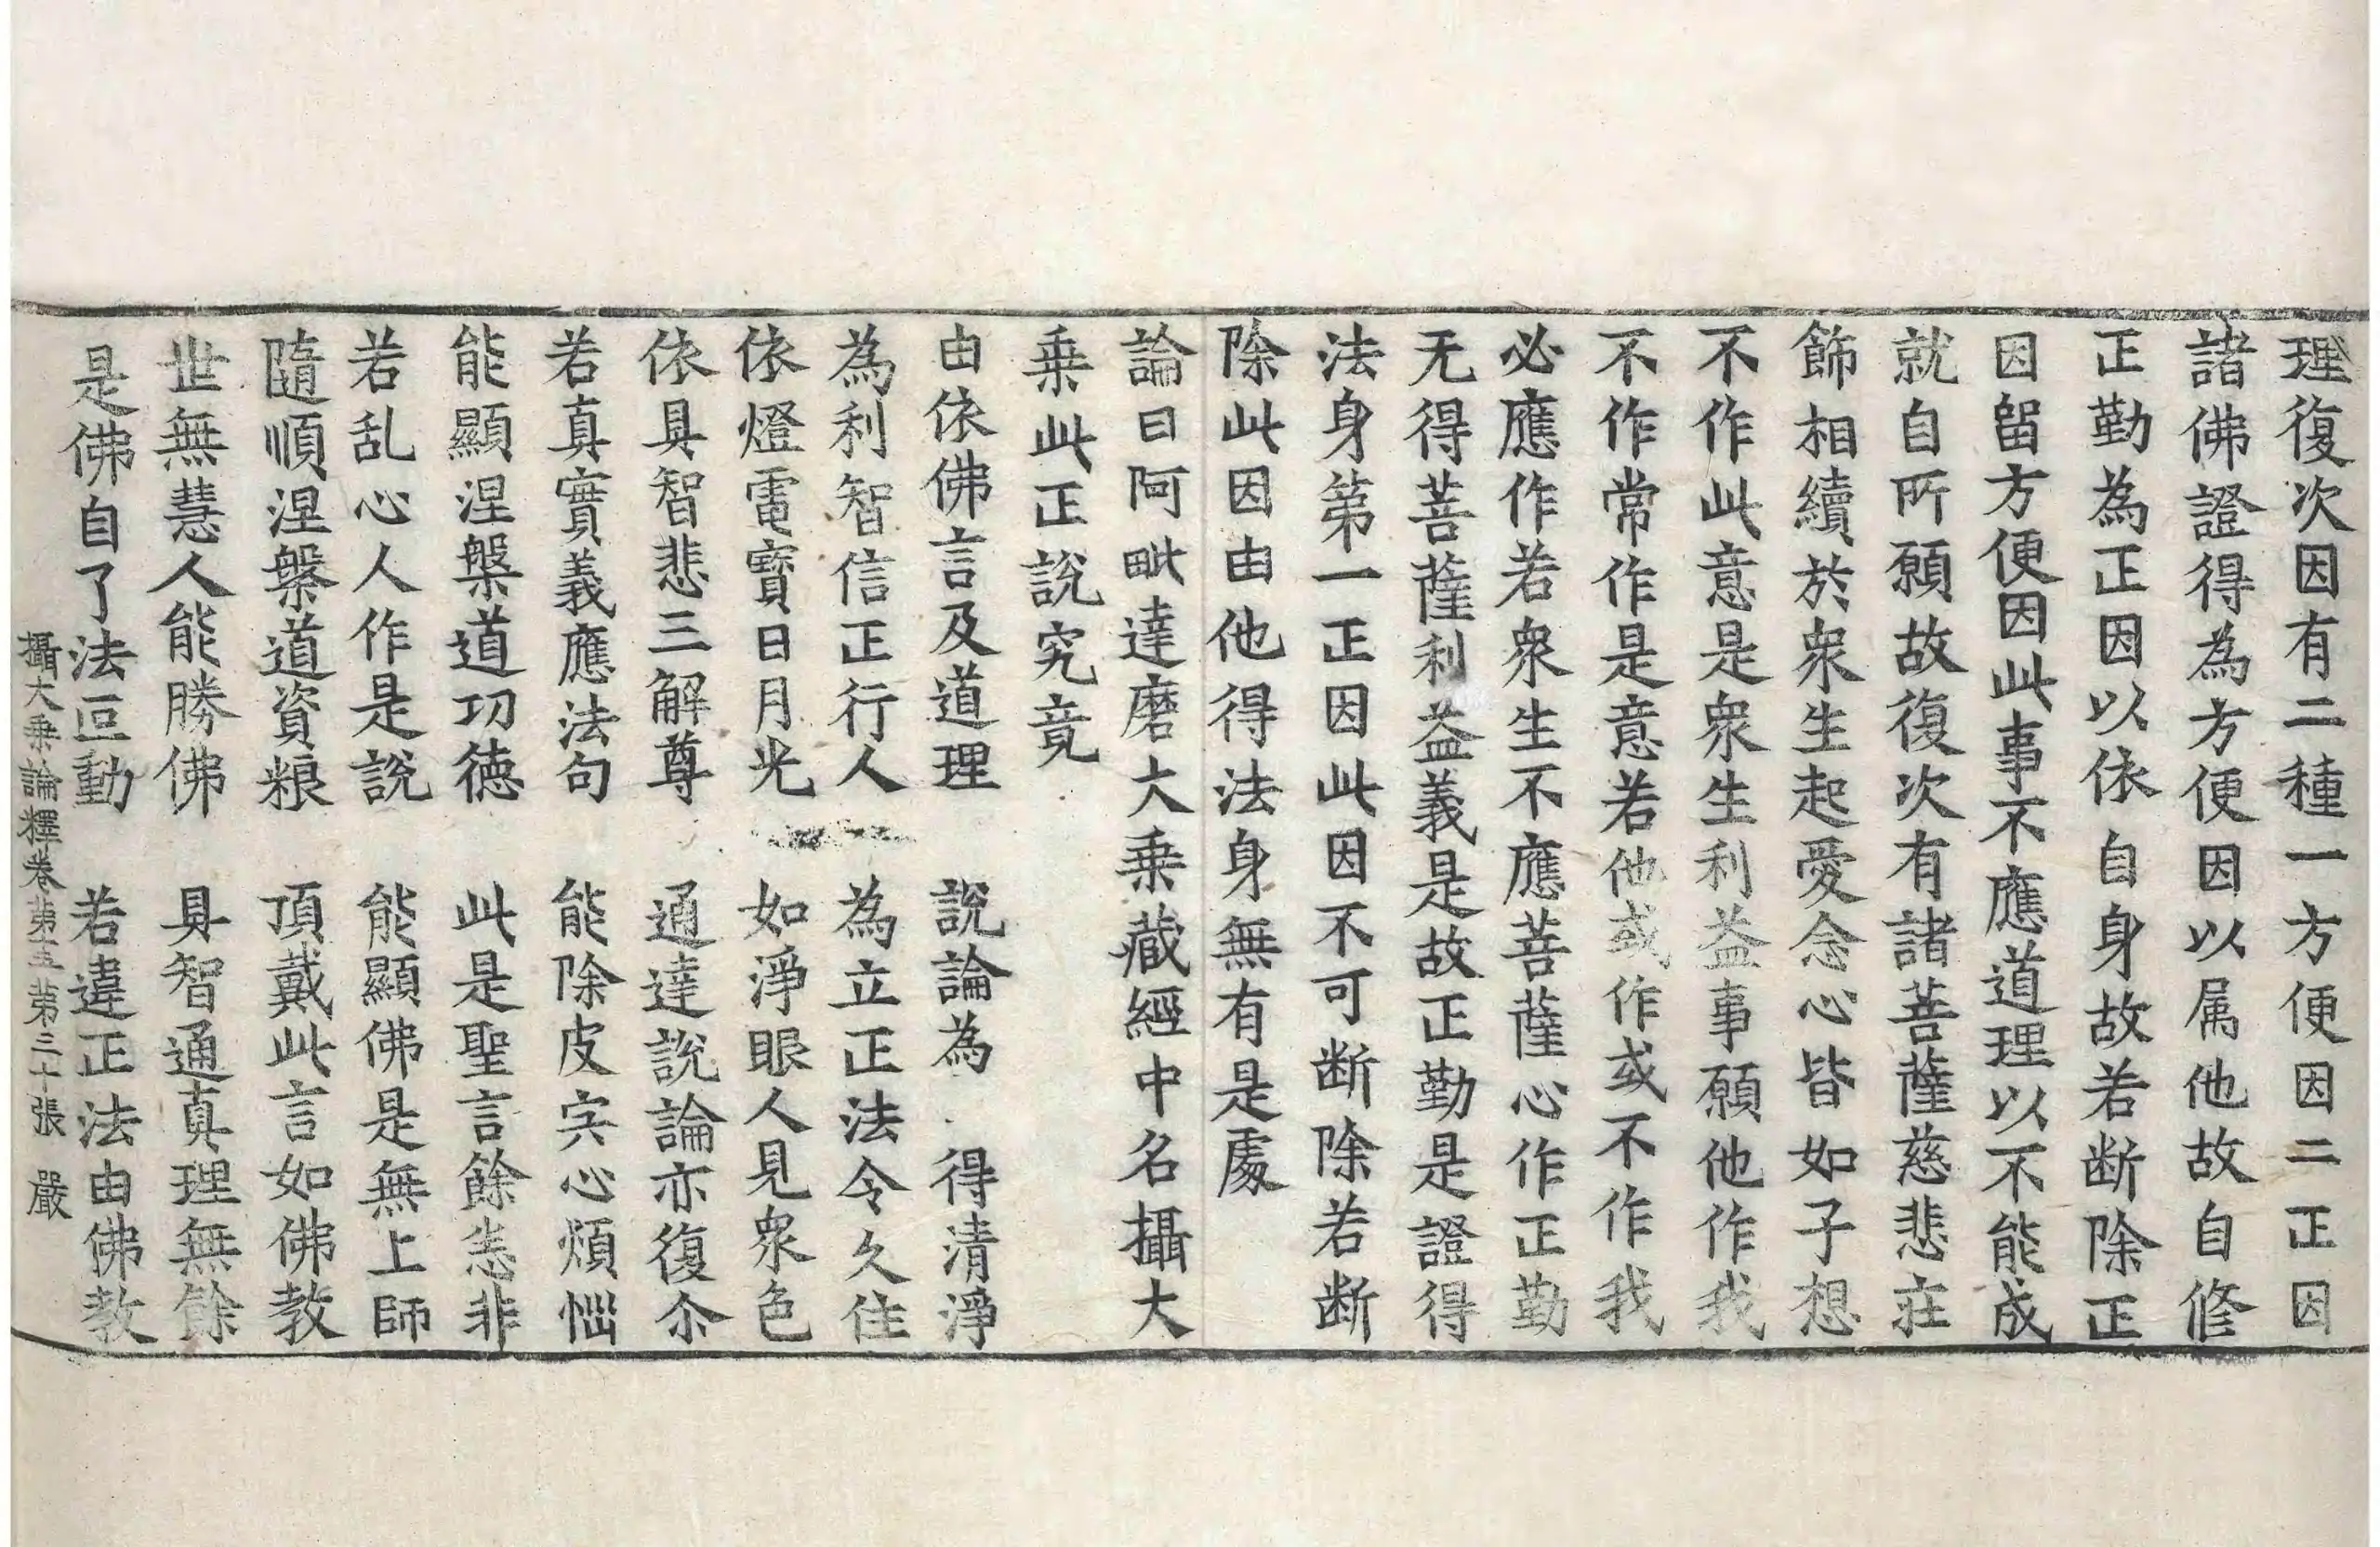 理復次因有二種一方便因二正因
諸佛證得為方便因以属他故自修
正勤為正因以依自身故若断除正
因留方便因此事不應道理以不能成
就自所願故復次有諸菩薩慈悲莊
飾相續於衆生起愛念心皆如子想
不作此意是衆生利益事願他作我
不作常作是意若他或作或不作我
必應作若衆生不應菩薩心作正勤
无得菩薩利益義是故正勤是證得
法身第一正因此因不可断除若断
除此因由他得法身無有是處
論曰阿毗達磨大乗藏經中名攝大
乗此正説究竟
由依佛言及道理　說論為　得清淨
為利智信正行人　為立正法令久住
依燈電寳日月光　如淨眼人見衆色
依具智悲三解尊　通達說論亦復尒
若真實義應法句　能除皮宍心煩惱
能顯涅槃道功徳　此是聖言餘恚非
若乱心人作是說　能顯佛是無上師
隨順涅槃道資粮　頂戴此言如佛教
世無慧人能勝佛　具智通真理無餘
是佛自了法叵動　若違正法由佛教
攝大乗論釋卷第十五　第三十張　嚴